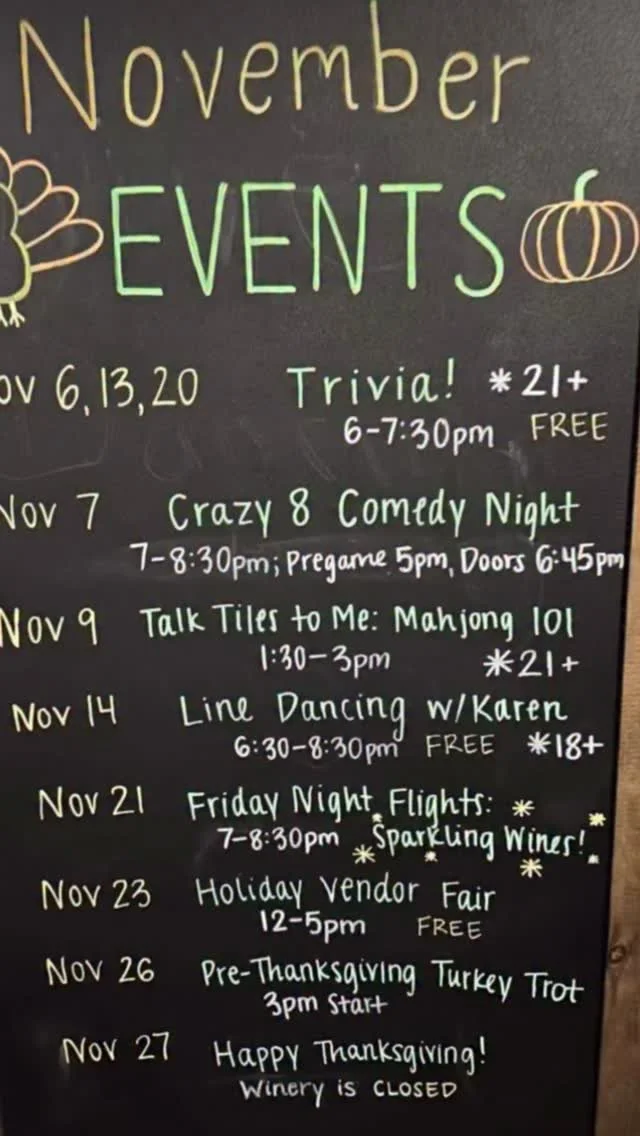 November
EVENTS
ov 6,13,20 Trivia! *21+
6-7:30pm FREE
Nov 7 Crazy 8 Comedy Night
7-8:30pm; Pregame 5pm, Doors 6:45pm
Nov 9 Talk Tiles to Me: Mahjong 101
1:30-3pm *21+
Nov 14 Line Dancing w/Karen
6:30-8:30pm FREE *18+
Nov 21 Friday Night Flights:
7-8:30pm Sparkling Wines!
Nov 23 Holiday Vendor Fair
12-5pm FREE
Nov 26 Pre-Thanksgiving Turkey Trot
3pm Start
Nov 27 Happy Thanksgiving!
Winery is CLOSED